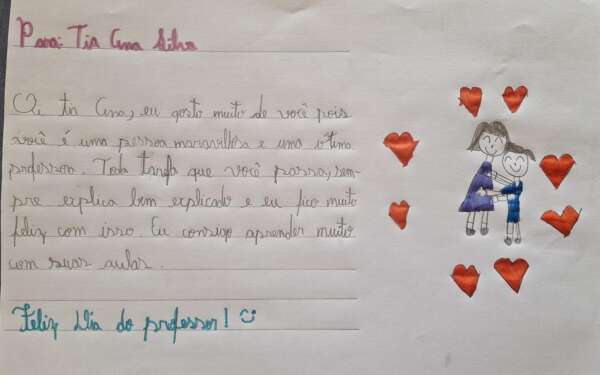 Para: Tia Ana Silva
Oi tia Ana, eu gosto muito de você pois
você é uma pessoa maravilhosa e uma ótima
professora. Toda tarefa que você passa, sem-
pre explica bem explicado e eu fico muito
feliz com isso. Eu consigo aprender muito
com suas aulas.
Feliz Dia do professor! ☺